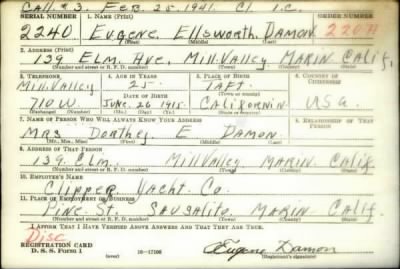 Call #3. Feb. 25, 1941. Cl. I.C.
SERIAL NUMBER 1. NAME (Print) ORDER NUMBER
2240 Eugene Ellsworth Damon 220A
(First) (Middle) (Last)
2. ADDRESS (Print)
139 Elm. Ave, Mill Valley Marin Calif,
(Number and street or R. F. D. number) (Town) (County) (State)
3. TELEPHONE 4. AGE IN YEARS 5. PLACE OF BIRTH 6. COUNTRY OF CITIZENSHIP
Mill Valley 25 Taft
DATE OF BIRTH
710 W June, 26 1915 California USA
(Exchange) (Number) (Mo.) (Day) (Yr.) (State or country)
7. NAME OF PERSON WHO WILL ALWAYS KNOW YOUR ADDRESS 8. RELATIONSHIP OF THAT PERSON
Mrs Dorthey E Damon
(Mr., Mrs., Miss) (First) (Middle) (Last)
9. ADDRESS OF THAT PERSON
139 Elm. Mill Valley Marin Calif
(Number and street or R. F. D. number) (Town) (County) (State)
10. EMPLOYER'S NAME
Clipper Yacht Co.
11. PLACE OF EMPLOYMENT OR BUSINESS
Pine St, Sausalito, Marin Calif.
(Number and street or R. F. D. number) (Town) (County) (State)
I AFFIRM THAT I HAVE VERIFIED ABOVE ANSWERS AND THAT THEY ARE TRUE.
Disc
REGISTRATION CARD
D. S. S. Form 1 (over) 16—17105 Eugene Damon
(Registrant's signature)